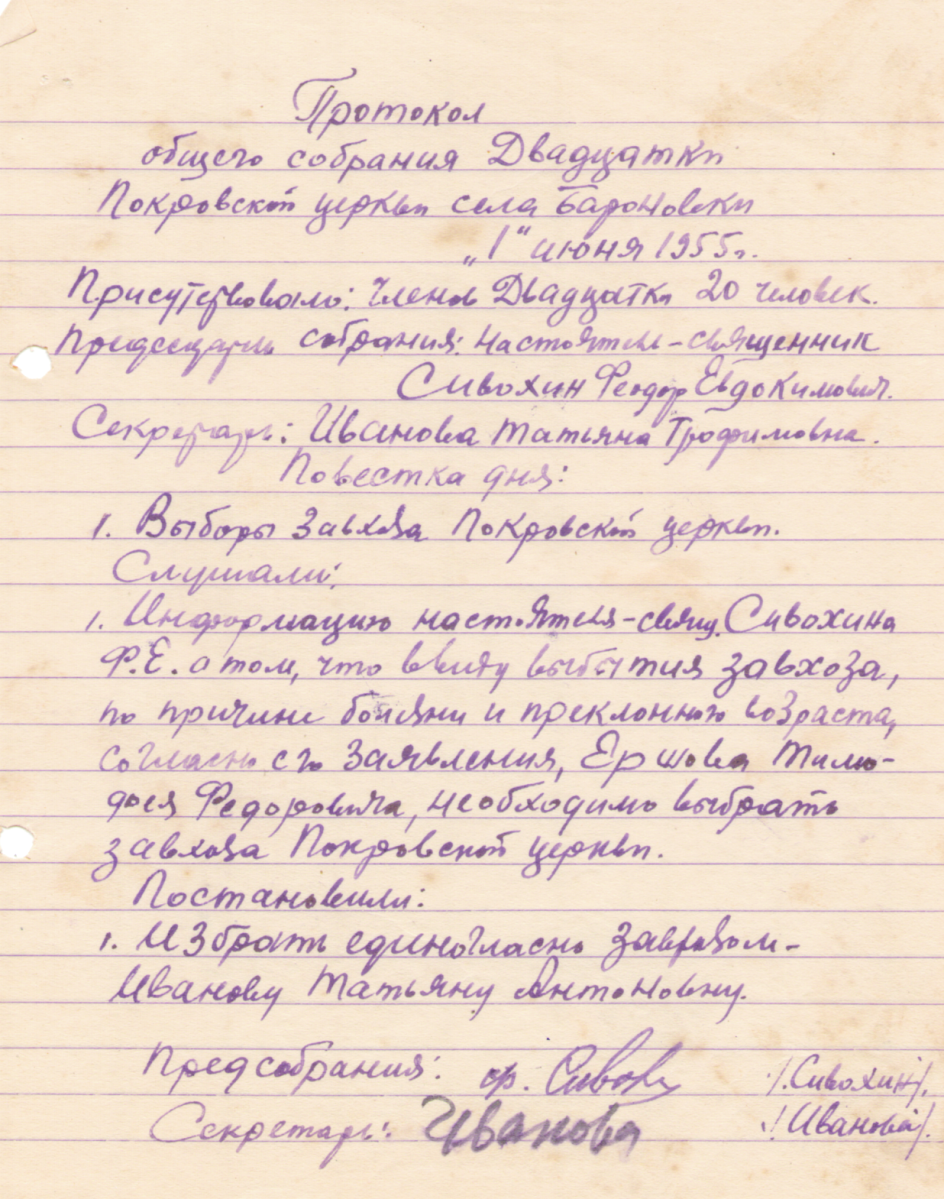 Протокол
общего собрания Двадцатки
Покровской церкви села Бароновски
„1“ июня 1955г.
Присутствовало: Членов Двадцатки 20 человек.
Председатель собрания: настоятель-священник
Сивохин Феодор Евдокимович.
Секретарь: Иванова Татьяна Трофимовна.
Повестка дня:
1. Выборы завхоза Покровской церкви.
Слушали:
1. Информацию настоятеля-свящ. Сивохина
Ф.Е. о том, что ввиду выбытия завхоза,
по причине болезни и преклонного возраста,
согласно его заявления, Ершова Тимо-
фея Федоровича, необходимо выбрать
завхоза Покровской церкви.
Постановили:
1. Избрать единогласно завхозом-
Иванову Татьяну Антоновну.
Предсобрания: Сивох /.Сивохин/.
Секретарь: Иванова /Иванова/.